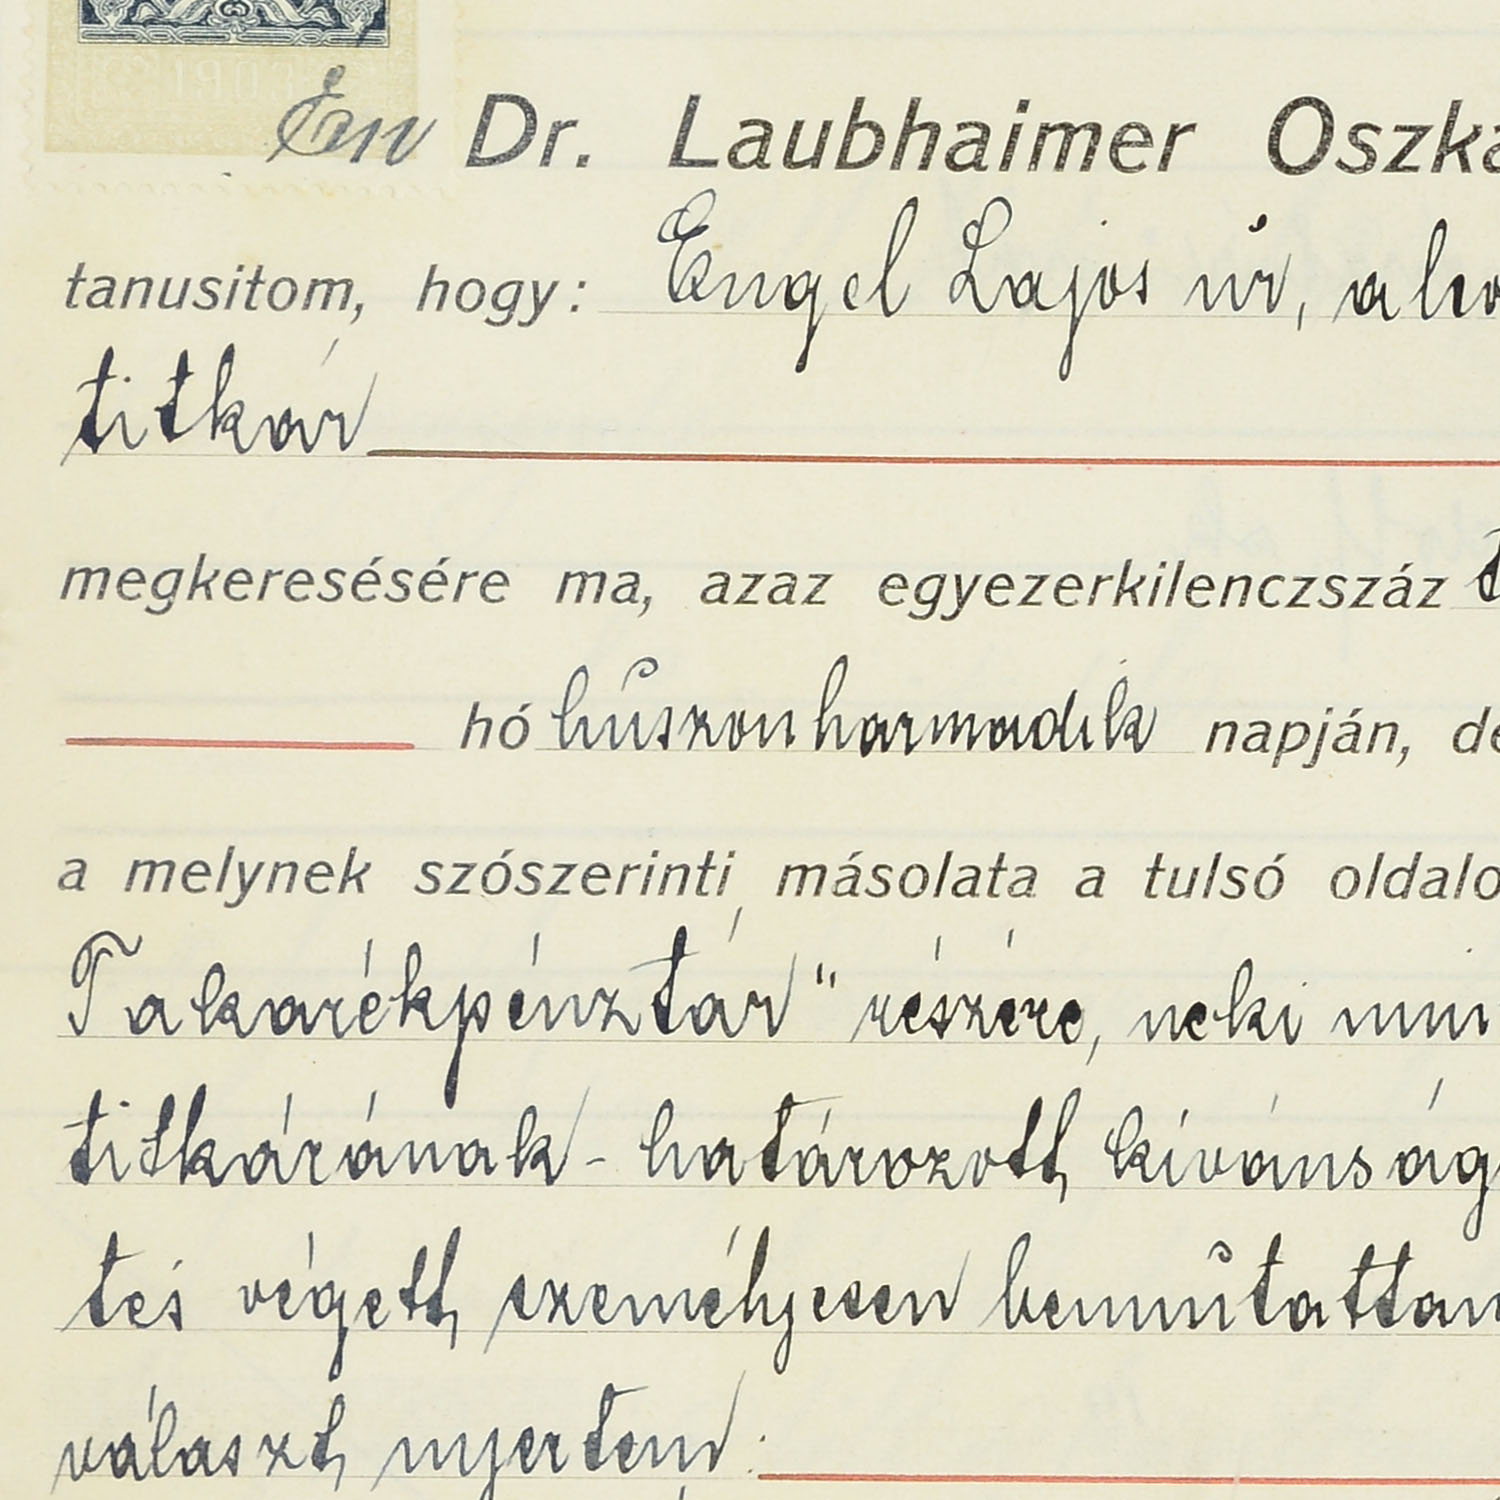 1903
Én Dr. Laubhaimer Oszká
tanusitom, hogy: Engel Lajos úr,
titkár
megkeresésére ma, azaz egyezerkilenczszáz
hó huszonharmadik napján, de
a melynek szószerinti másolata a tulsó oldalo
Takarékpénztár" részére, neki min
titkárának - határozott kívánság
tés végett, személyesen bemutattam
választ nyertem: